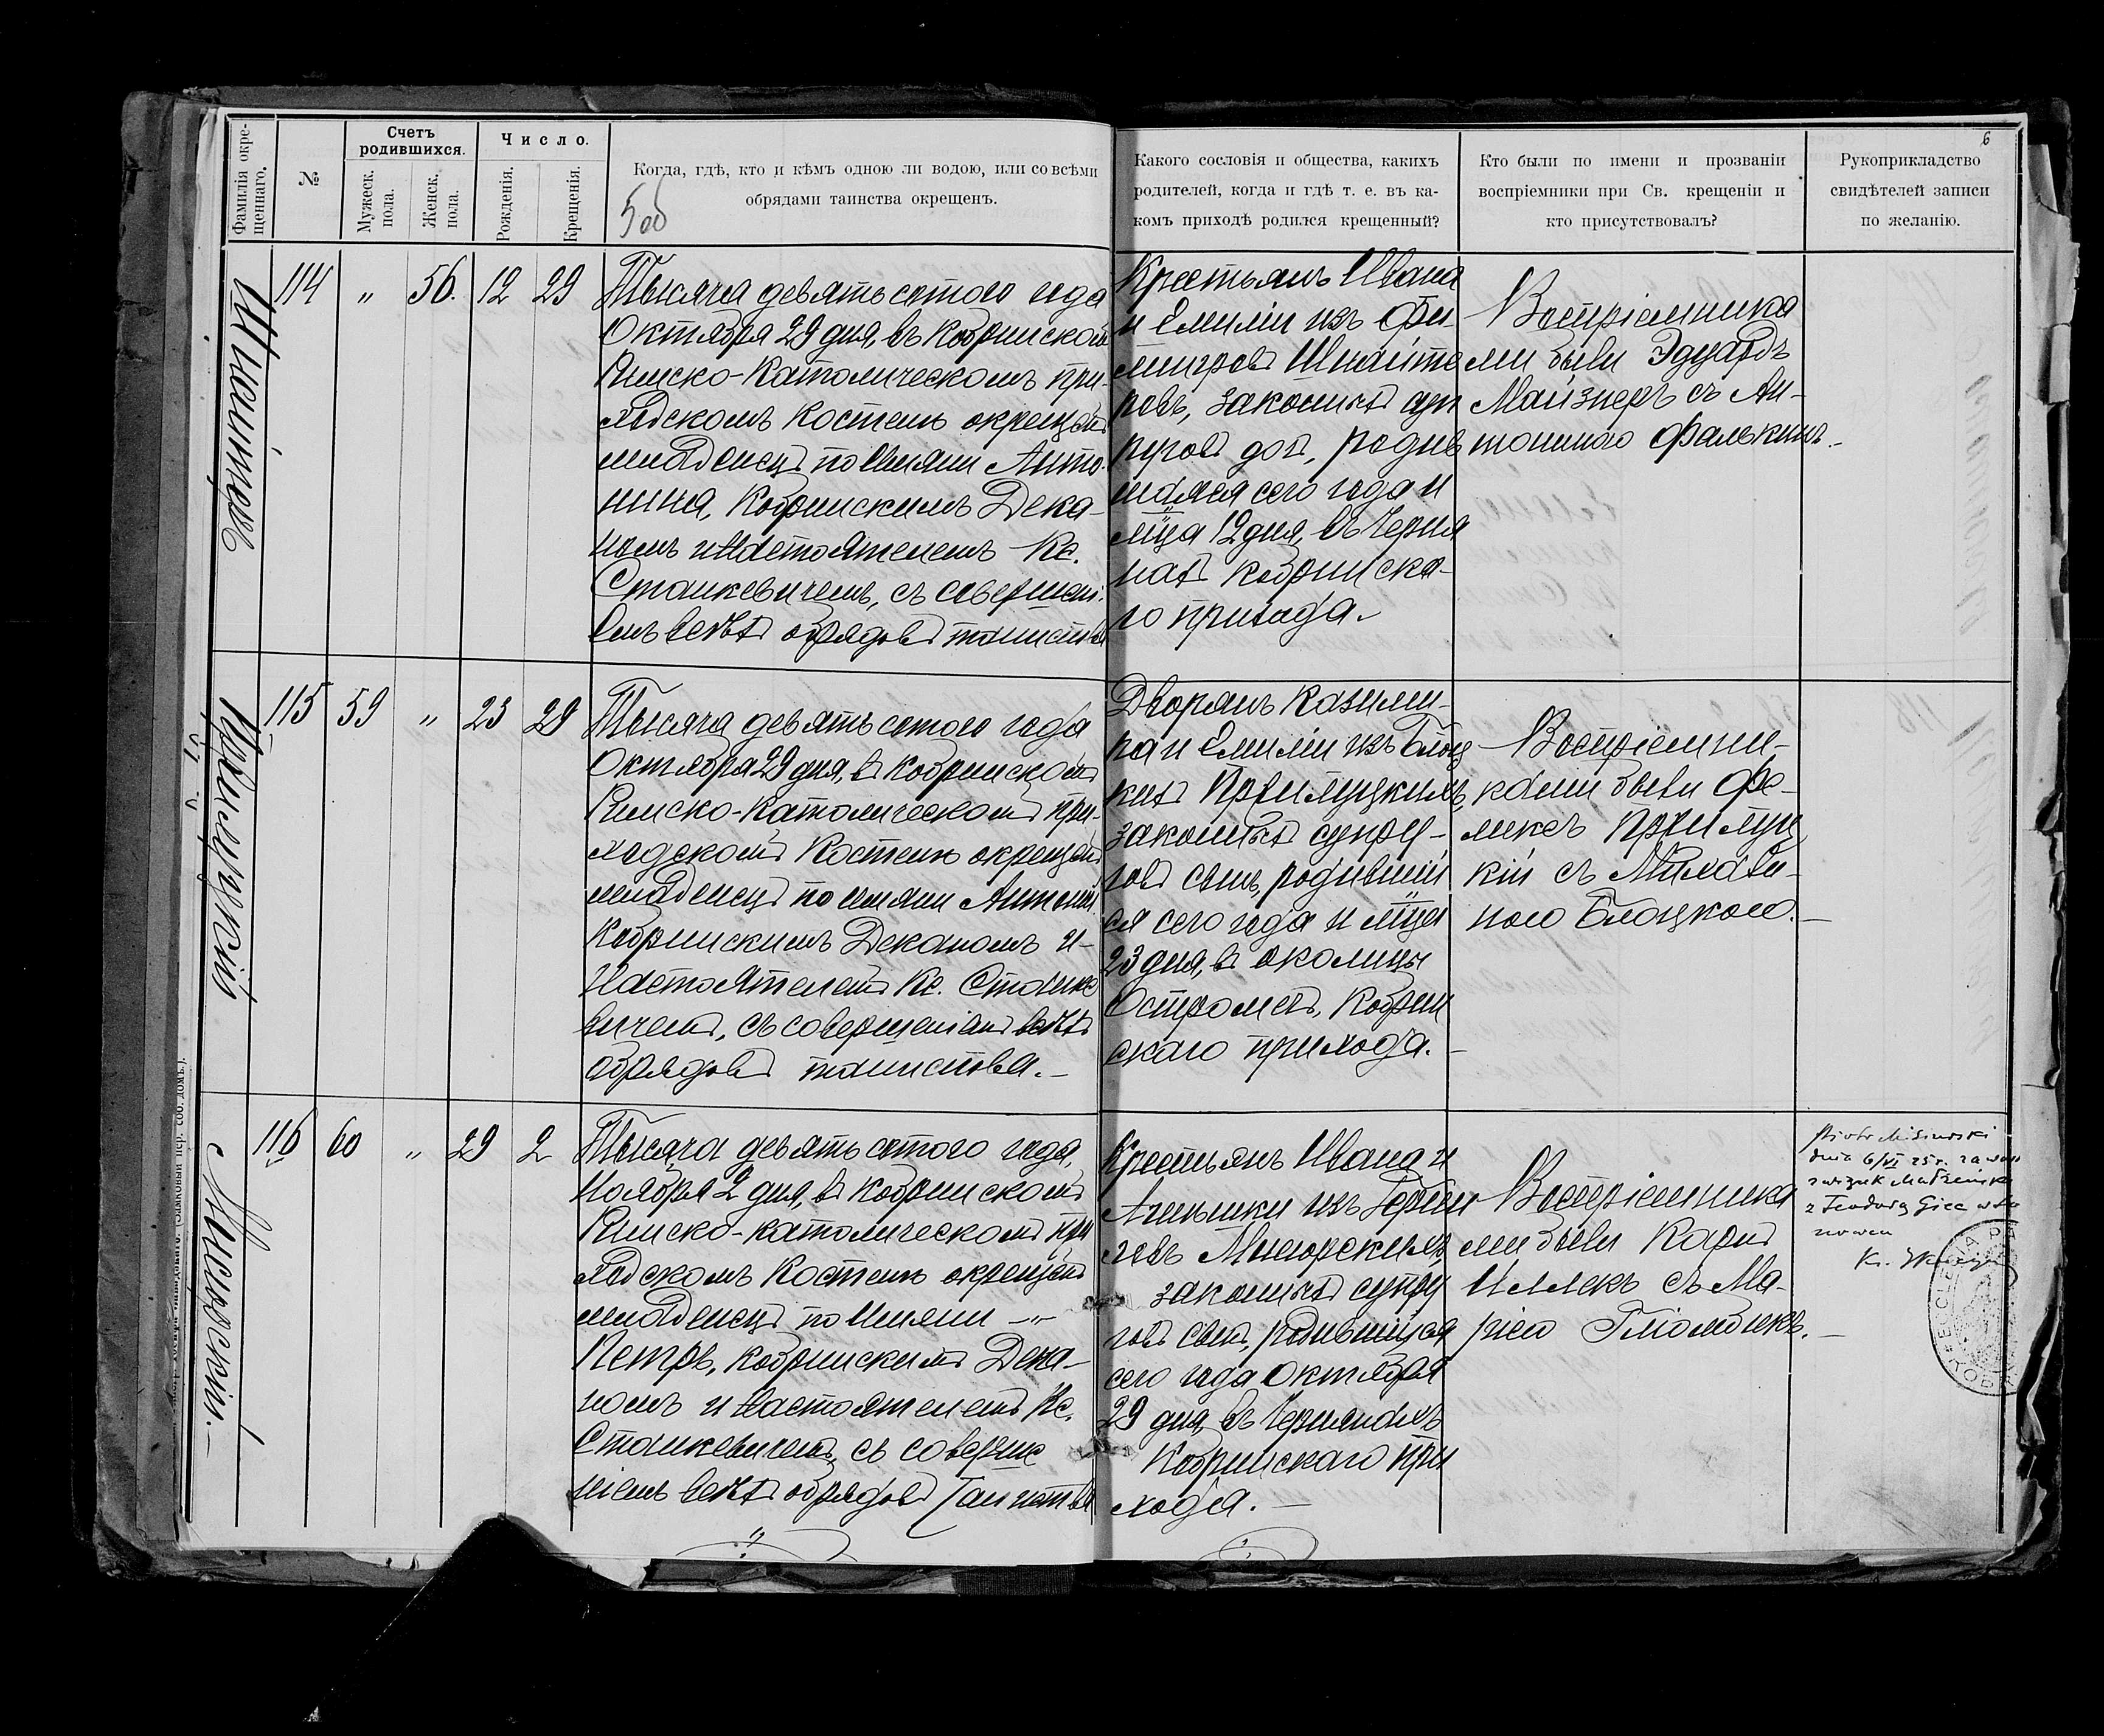 Фамилія окре-
щеннаго.
№
Счетъ
родившихся.
Мужеск.
пола.
Женск.
пола.
Число.
Рожденія.
Крещенія.
Когда, гдѣ, кто и кѣмъ одною ли водою, или со всѣми
обрядами таинства окрещенъ.
Какого сословія и общества, какихъ
родителей, когда и гдѣ т. е. въ ка-
комъ приходѣ родился крещенный?
Кто были по имени и прозваніи
воспріемники при Св. крещеніи и
кто присутствовалъ?
Рукоприкладство
свидѣтелей записи
по желанію.
6
114 " 56. 12 29
Тысяча девятьсотого года
Октября 29 дня, въ Кобринскомъ
Римско-Католическомъ при-
ходскомъ костелѣ окрещенъ
младенецъ по имяни Анто-
нина, Кобринскимъ Дека-
номъ и Настоятелемъ Кс.
Станкевичемъ, съ совершені-
емъ всѣхъ обрядовъ таинства
Крестьянъ Ивана
и Емиліи изъ
Шнайте
ровъ, законныхъ суп
руговъ дочь, родив
шаяся сего года и
мца 12 дня, въ Черня
нахъ Кобринска-
го прихода.
Воспріемника
ми были Эдуардъ
Майзнеръ съ Ан-
тониною Фалькинъ.
115 59 " 23 29
Тысяча девятьсотого года
Октября 29 дня, въ Кобринскомъ
Римско-Католическомъ при-
ходскомъ костелѣ окрещенъ
младенецъ по имяни Антоній
Кобринскимъ Деканомъ и
Настоятелемъ Кс. Станке
вичемъ, съ совершеніемъ всѣхъ
обрядовъ таинства.
Дворянъ Казими-
ра и Емиліи изъ Блоц
кихъ Пржилуцкихъ,
законныхъ супру-
говъ сынъ, родившій
ся сего года и мца
23 дня, въ околицы
Остромечь, Кобрин
скаго прихода.
Воспріемни-
ками были Фе-
ликсъ Пржилуц
кій съ
ною Блоцкою.
Пржилуцкій
116 60 " 29 2
Тысяча девятьсотого года,
Ноября 2 дня, въ Кобринскомъ
Римско-католическомъ при
ходскомъ костелѣ окрещенъ
младенецъ по имяни
Петръ, Кобринскимъ Дека-
номъ и Настоятелемъ Кс.
Станкевичемъ, съ соверше
ніемъ всѣхъ обрядовъ Таинства
Крестьянъ Ивана и
изъ
законныхъ супру
говъ сынъ, родившійся
сего года Октября
29 дня, въ Чернянахъ
Кобринскаго при
хода.
Воспріемника
ми были Карлъ
съ Ма-
ріею
Piotr Misiurski
dnia 6/VI 25 r. zawarł
związek małżeński
z Teodorą